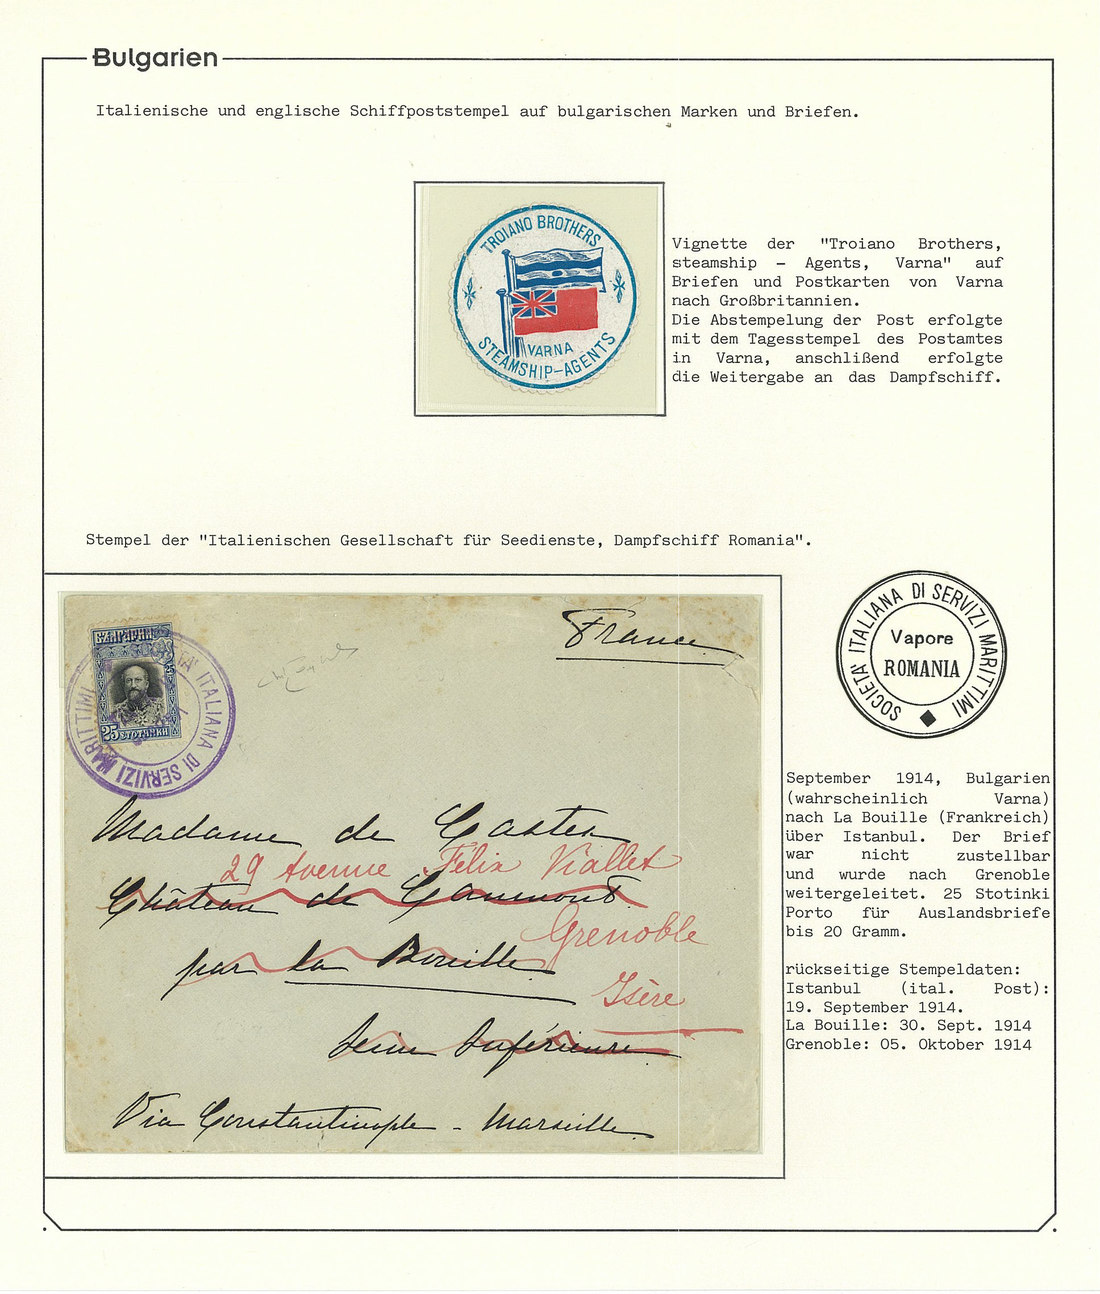 Bulgarien
Italienische und englische Schiffpoststempel auf bulgarischen Marken und Briefen.
TROIANO BROTHERS
VARNA
STEAMSHIP-AGENTS
Vignette der "Troiano Brothers,
steamship - Agents, Varna" auf
Briefen und Postkarten von Varna
nach Großbritannien.
Die Abstempelung der Post erfolgte
mit dem Tagesstempel des Postamtes
in Varna, anschlißend erfolgte
die Weitergabe an das Dampfschiff.
Stempel der "Italienischen Gesellschaft für Seedienste, Dampfschiff Romania".
France
БЪЛГАРИЯ
25
25 СТОТИНКИ
ITALIANA DI SERVIZI MARITTIMI
Madame de Castex
29 Avenue Félix Viallet
Château de Caumont
Grenoble
par La Bouille
Isère
Seine Inférieure
Via Constantinople - Marseille
SOCIETA' ITALIANA DI SERVIZI MARITTIMI
Vapore
ROMANIA
September 1914, Bulgarien
(wahrscheinlich Varna)
nach La Bouille (Frankreich)
über Istanbul. Der Brief
war nicht zustellbar
und wurde nach Grenoble
weitergeleitet. 25 Stotinki
Porto für Auslandsbriefe
bis 20 Gramm.
rückseitige Stempeldaten:
Istanbul (ital. Post):
19. September 1914.
La Bouille: 30. Sept. 1914
Grenoble: 05. Oktober 1914